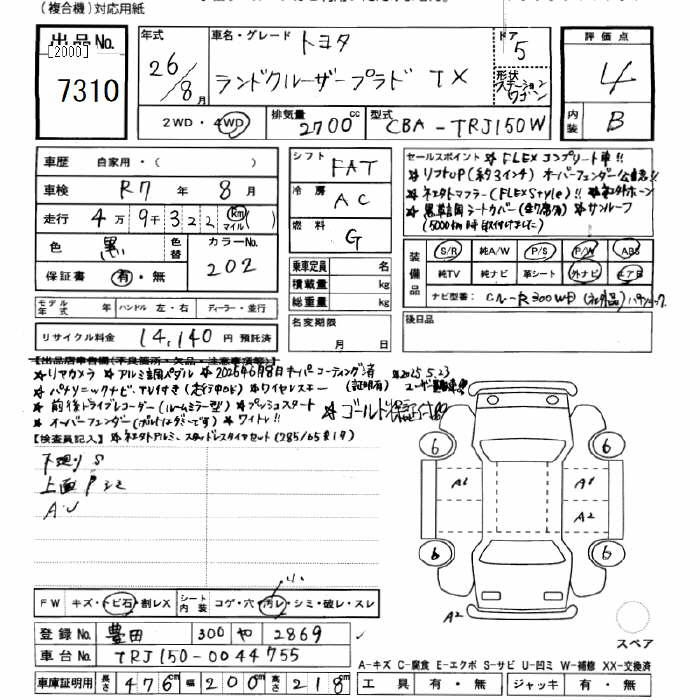 (複合機)対応用紙
出品No.
[2000]
7310
年式
26/8月
車名・グレード トヨタ
ランドクルーザープラド TX
ドア 5
形状 ステーションワゴン
評価点 4
内装 B
2WD・4WD
排気量 2700cc
型式 CBA-TRJ150W
車歴 自家用・( )
車検 R7年8月
走行 4万9千322 km マイル
色 黒 色替 カラーNo. 202
保証書 有・無
シフト FAT
冷房 AC
燃料 G
乗車定員 名
積載量 kg
総重量 kg
名変期限 月 日
セールスポイント ★FLEXコンプリート車!!
★リフトUP(約3インチ) オーバーフェンダー公認済!!
★社外マフラー(FLEXStyle)!! ★社外ホーン
★黒革調シートカバー(全7席分) ★サンルーフ
(5000km時取付けました)
装備品 S/R 純A/W P/S P/W ABS
純TV 純ナビ 革シート 外ナビ エアB
ナビ型番: CN-R300WD(社外品)パナソニック
後日品
モデル年式 年 ハンドル 左・右 ディーラー・並行
リサイクル料金 14,140円 預託済
【出品店申告欄(不良箇所・欠品・注意事項等)】
★リアカメラ ★アルミ調ペダル ★2025年6月8日キーパーコーティング済
★2025.5.23
★パナソニックナビ.TV付き(走行中OK) ★ワイヤレスキー (証明有) ユーザー買取車!!
★前後ドライブレコーダー(ルームミラー型) ★プッシュスタート ★ゴールド保証付!!
★オーバーフェンダー(ボルトはダミーです) ★ワイトレ!!
【検査員記入】 ★社外アルミ、スタッドレスタイヤセット(285/65R17)
下廻りS
上面Pシミ
A.U
6
6
6
6
A1
A1
A2
A2
スペア
FW キズ・トビ石・割レX シート内装 コゲ・穴・汚レ・シミ・破レ・スレ
小
登録No. 豊田 300 や 2869
車台No. TRJ150-0044755
車庫証明用 長さ 476cm 幅 200cm 高さ 218cm
A-キズ C-腐食 E-エクボ S-サビ U-凹ミ W-補修 XX-交換済
工具 有・無 ジャッキ 有・無